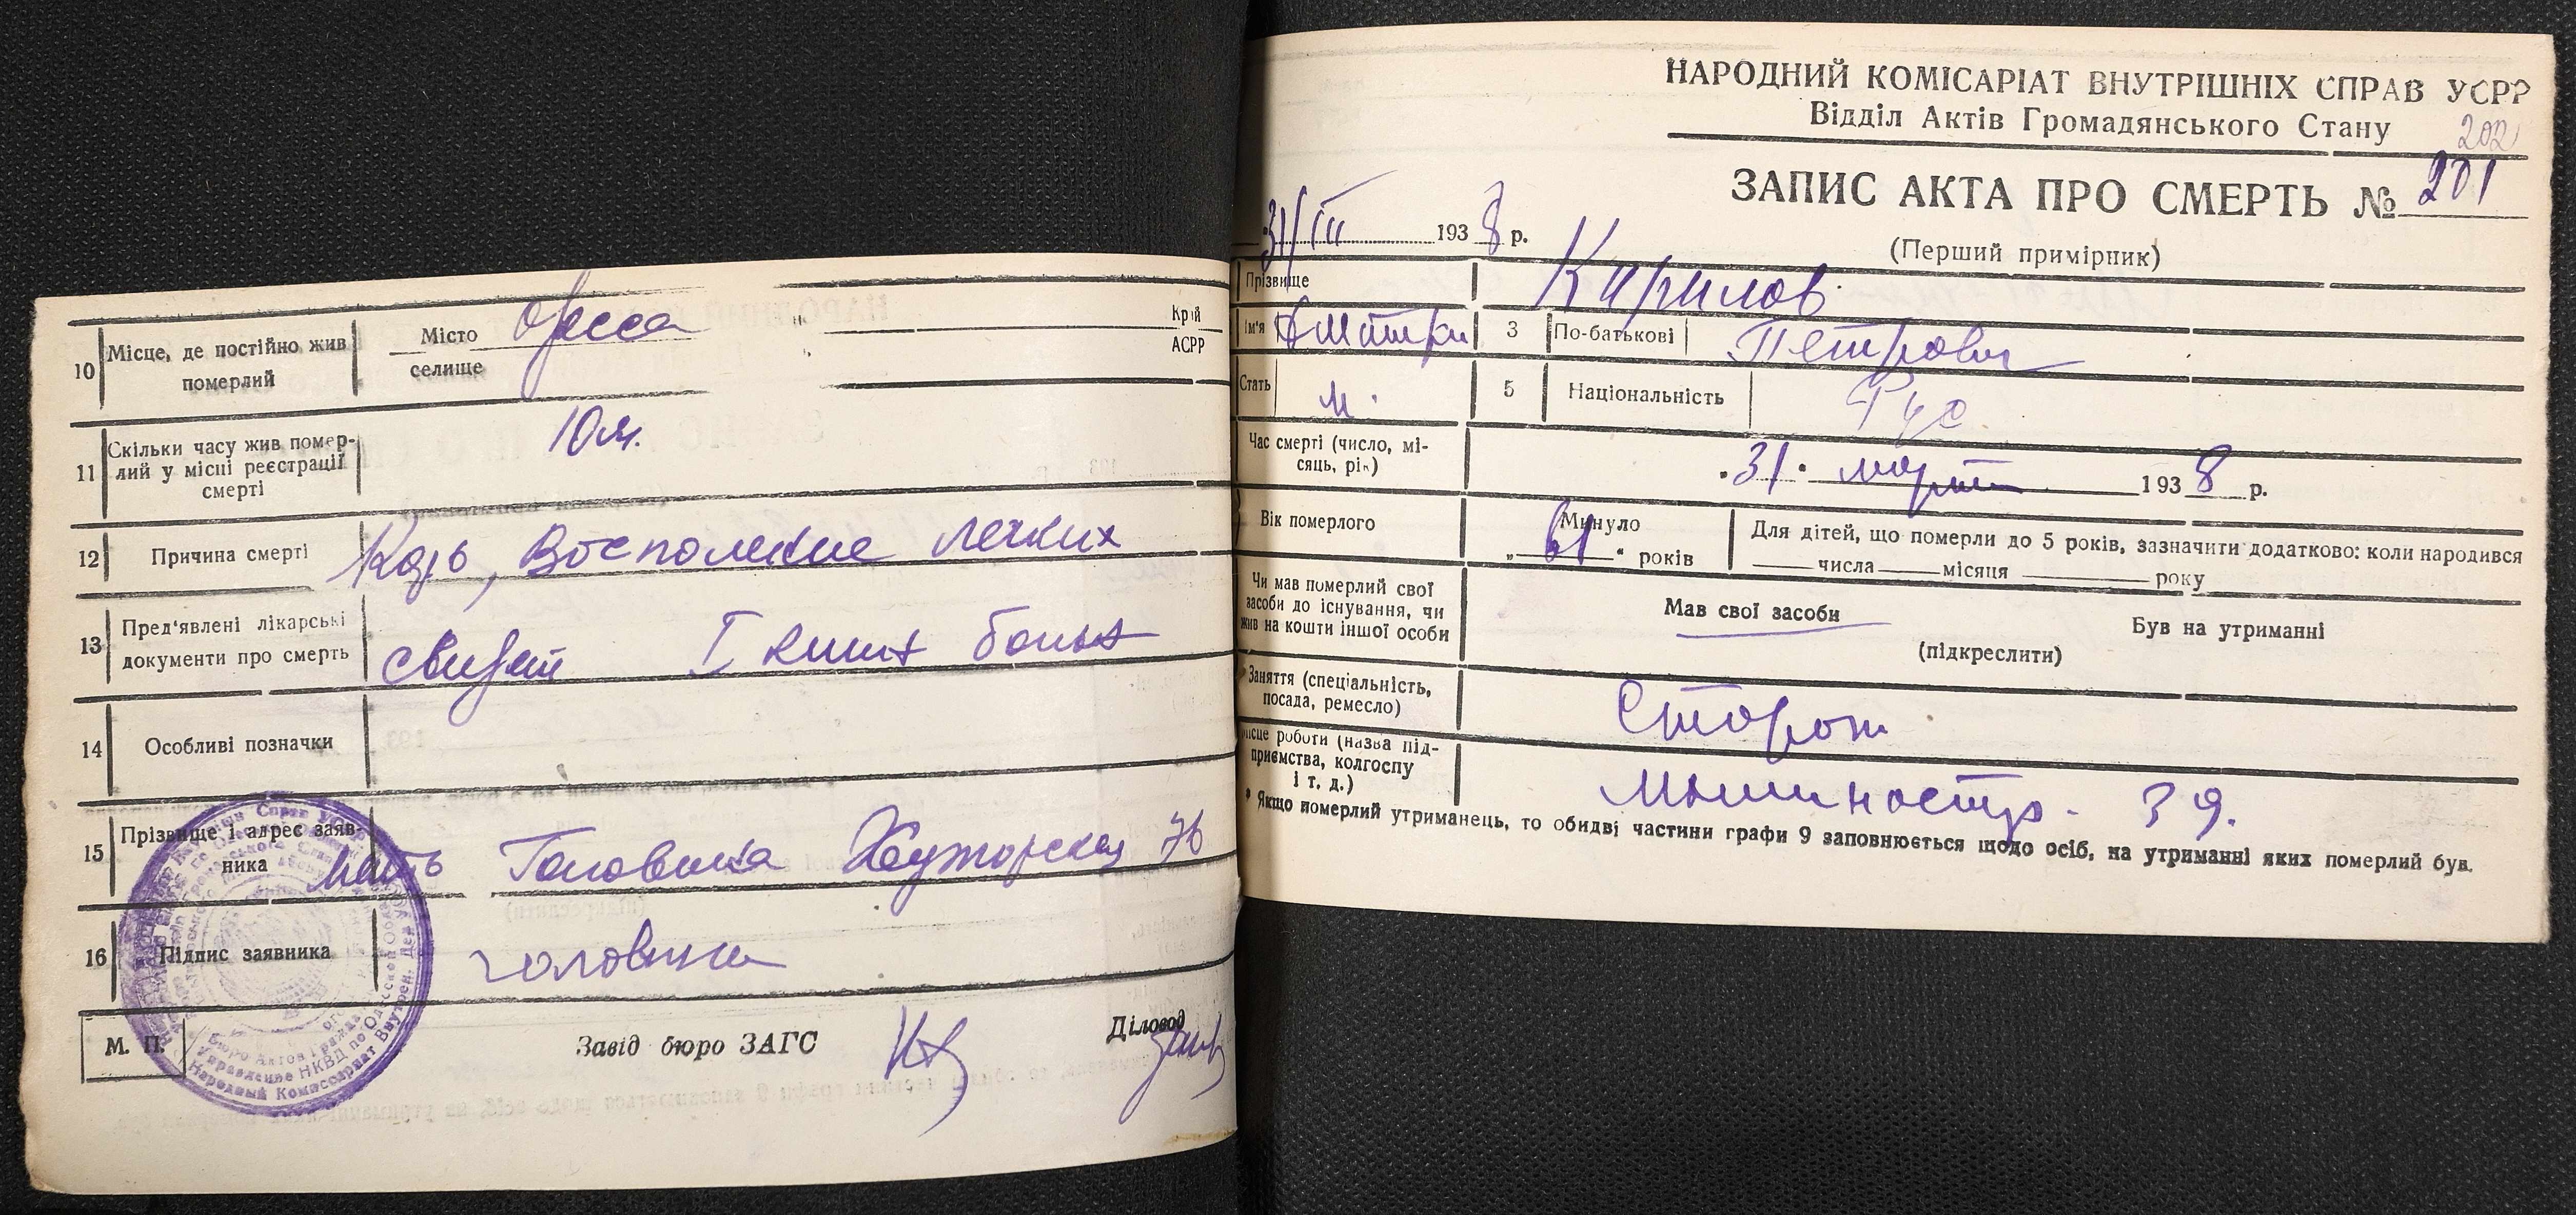 10 Місце, де постійно жив померлий
Місто Одесса Край
селище АСРР
11 Скільки часу жив помер-
лий у місці реєстрації
смерті
10 м.
12 Причина смерті Корь, Восполение легких
13 Пред'явлені лікарські
документи про смерть
свидет I клин больн
14 Особливі позначки
15 Прізвище і адрес заяв-
ника мать Головина Хуторская 76
16 Підпис заявника головина
М. П. Завід бюро ЗАГС Діловод
НАРОДНИЙ КОМІСАРІАТ ВНУТРІШНІХ СПРАВ УСРР
Відділ Актів Громадянського Стану
202
ЗАПИС АКТА ПРО СМЕРТЬ № 201
31/III 1938 р.
(Перший примірник)
Прізвище Кирилов
Ім'я Дмитри 3 По-батькові Петрович
Стать м. 5 Національність Рус
Час смерті (число, мі-
сяць, рік)
"31" март 1938 р.
Вік померлого Минуло
„61“ років
Для дітей, що померли до 5 років, зазначити додатково: коли народився
числа місяця року
Чи мав померлий свої
засоби до існування, чи
жив на кошти іншої особи
Мав свої засоби Був на утриманні
(підкреслити)
* Заняття (спеціальність,
посада, ремесло)
Сторож
місце роботи (назва під-
приємства, колгоспу
і т. д.)
39.
* Якщо померлий утриманець, то обидві частини графи 9 заповнюється щодо осіб, на утриманні яких померлий був.